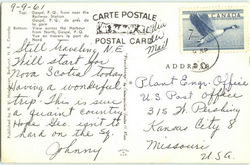 9-9-61
Top: Gaspé, P. Q. from near the
Railway Station
Gaspé, P. Q. du
Bottom: View across the Harbour
from North, Gaspé, P. Q.
CARTE POSTALE
POSTAL CARD
CANADA
7
ADDRESS
Still traveling N.E.
Will start you
Nova Scotia today
Having a wonderful
trip. This is sure
a quaint country
Hope Ike isn't
hard on the Sq.
Johnny
Plant Engr. Office
U.S. Post Office
315 W. Pershing
Kansas City 8
Missouri
U.S.